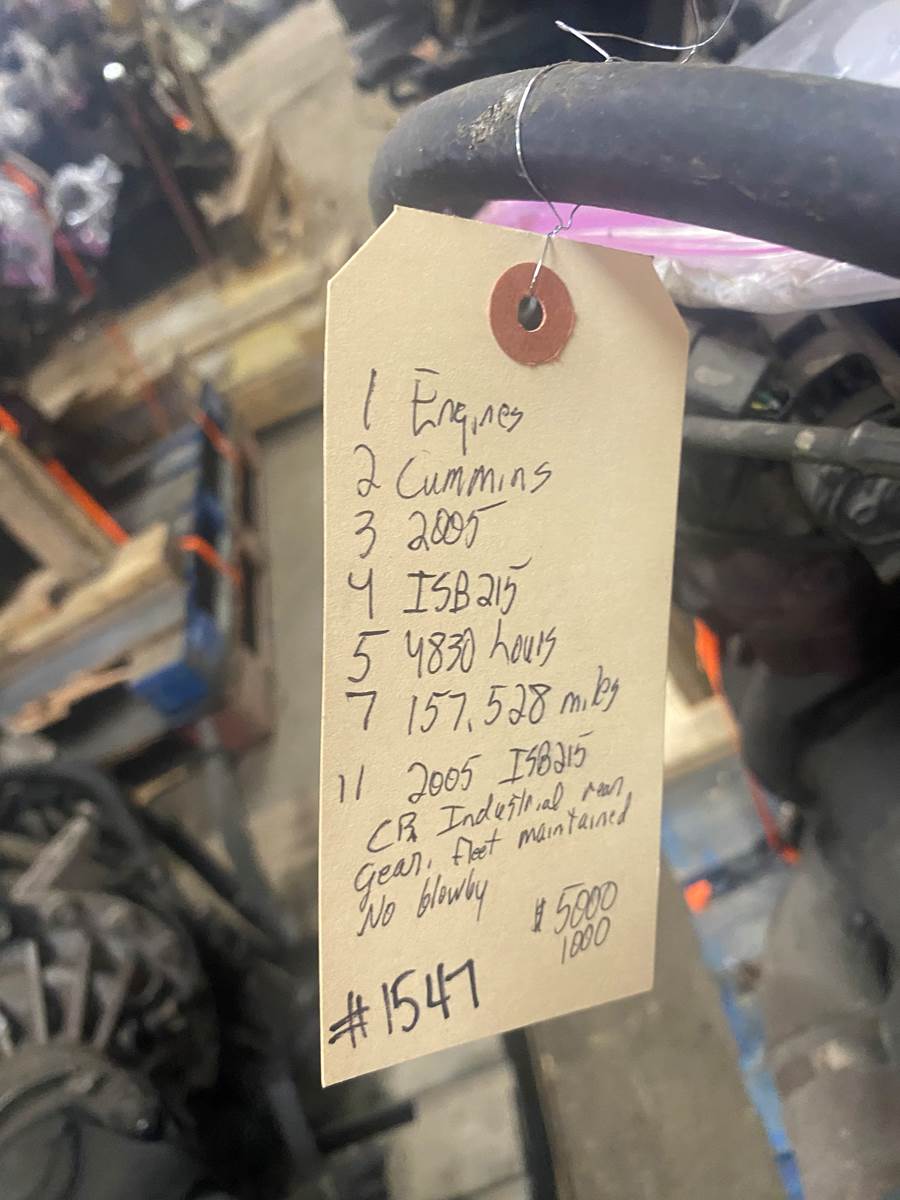 1 Engines
2 Cummins
3 2005
4 ISB215
5 4830 hours
7 157,528 miles
11 2005 ISB215
Industrial rear
gear, fleet maintained
No blowby
$5000
1000
#1547